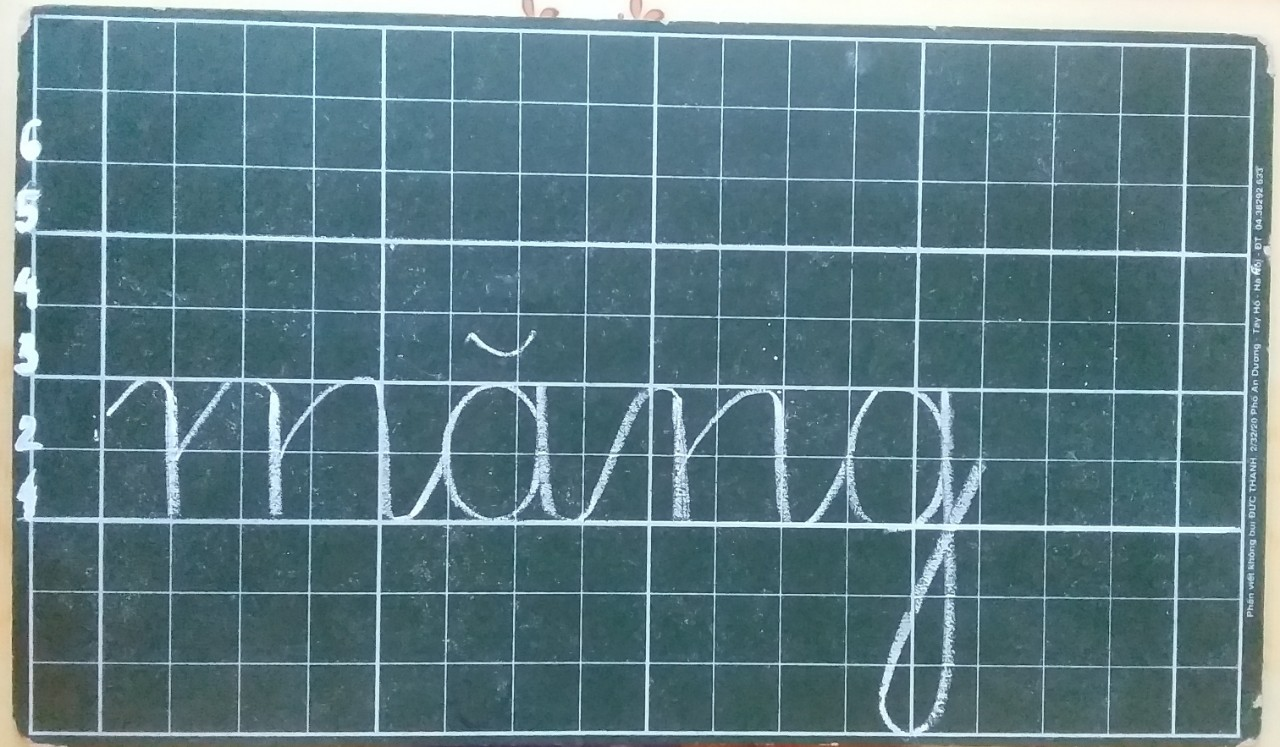 6
5
4
3
2
1
măng
Phấn viết không bụi ĐỨC THANH. 2/32/20 Phố An Dương - Tây Hồ - Hà Nội - ĐT 04.38292 633